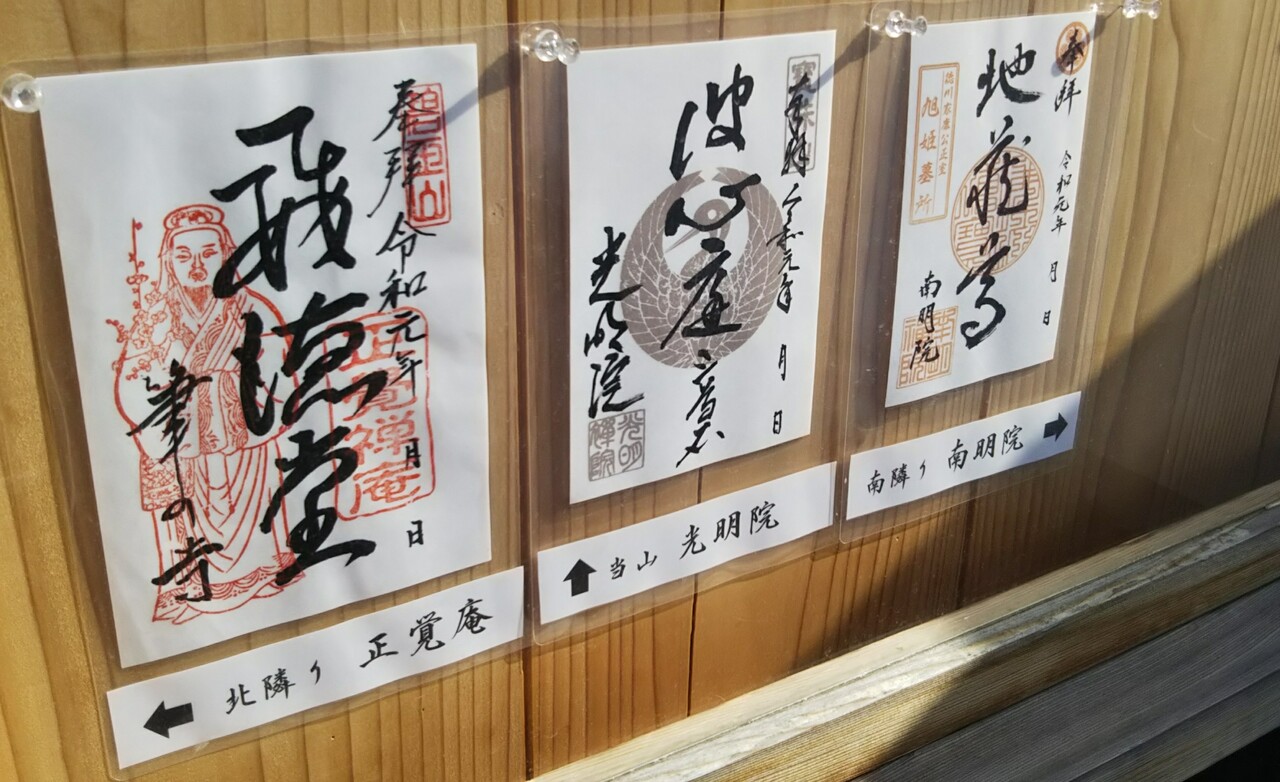 奉拝 令和元年 月 日
徳堂
筆の寺
正覚禅庵
北隣り 正覚庵
奉拝 令和元年 月 日
波心庭
光明院
光明禅院
当山 光明院
奉拝 令和元年 月 日
地蔵尊
徳川家康公正室
旭姫墓所
南明院
南隣り 南明院